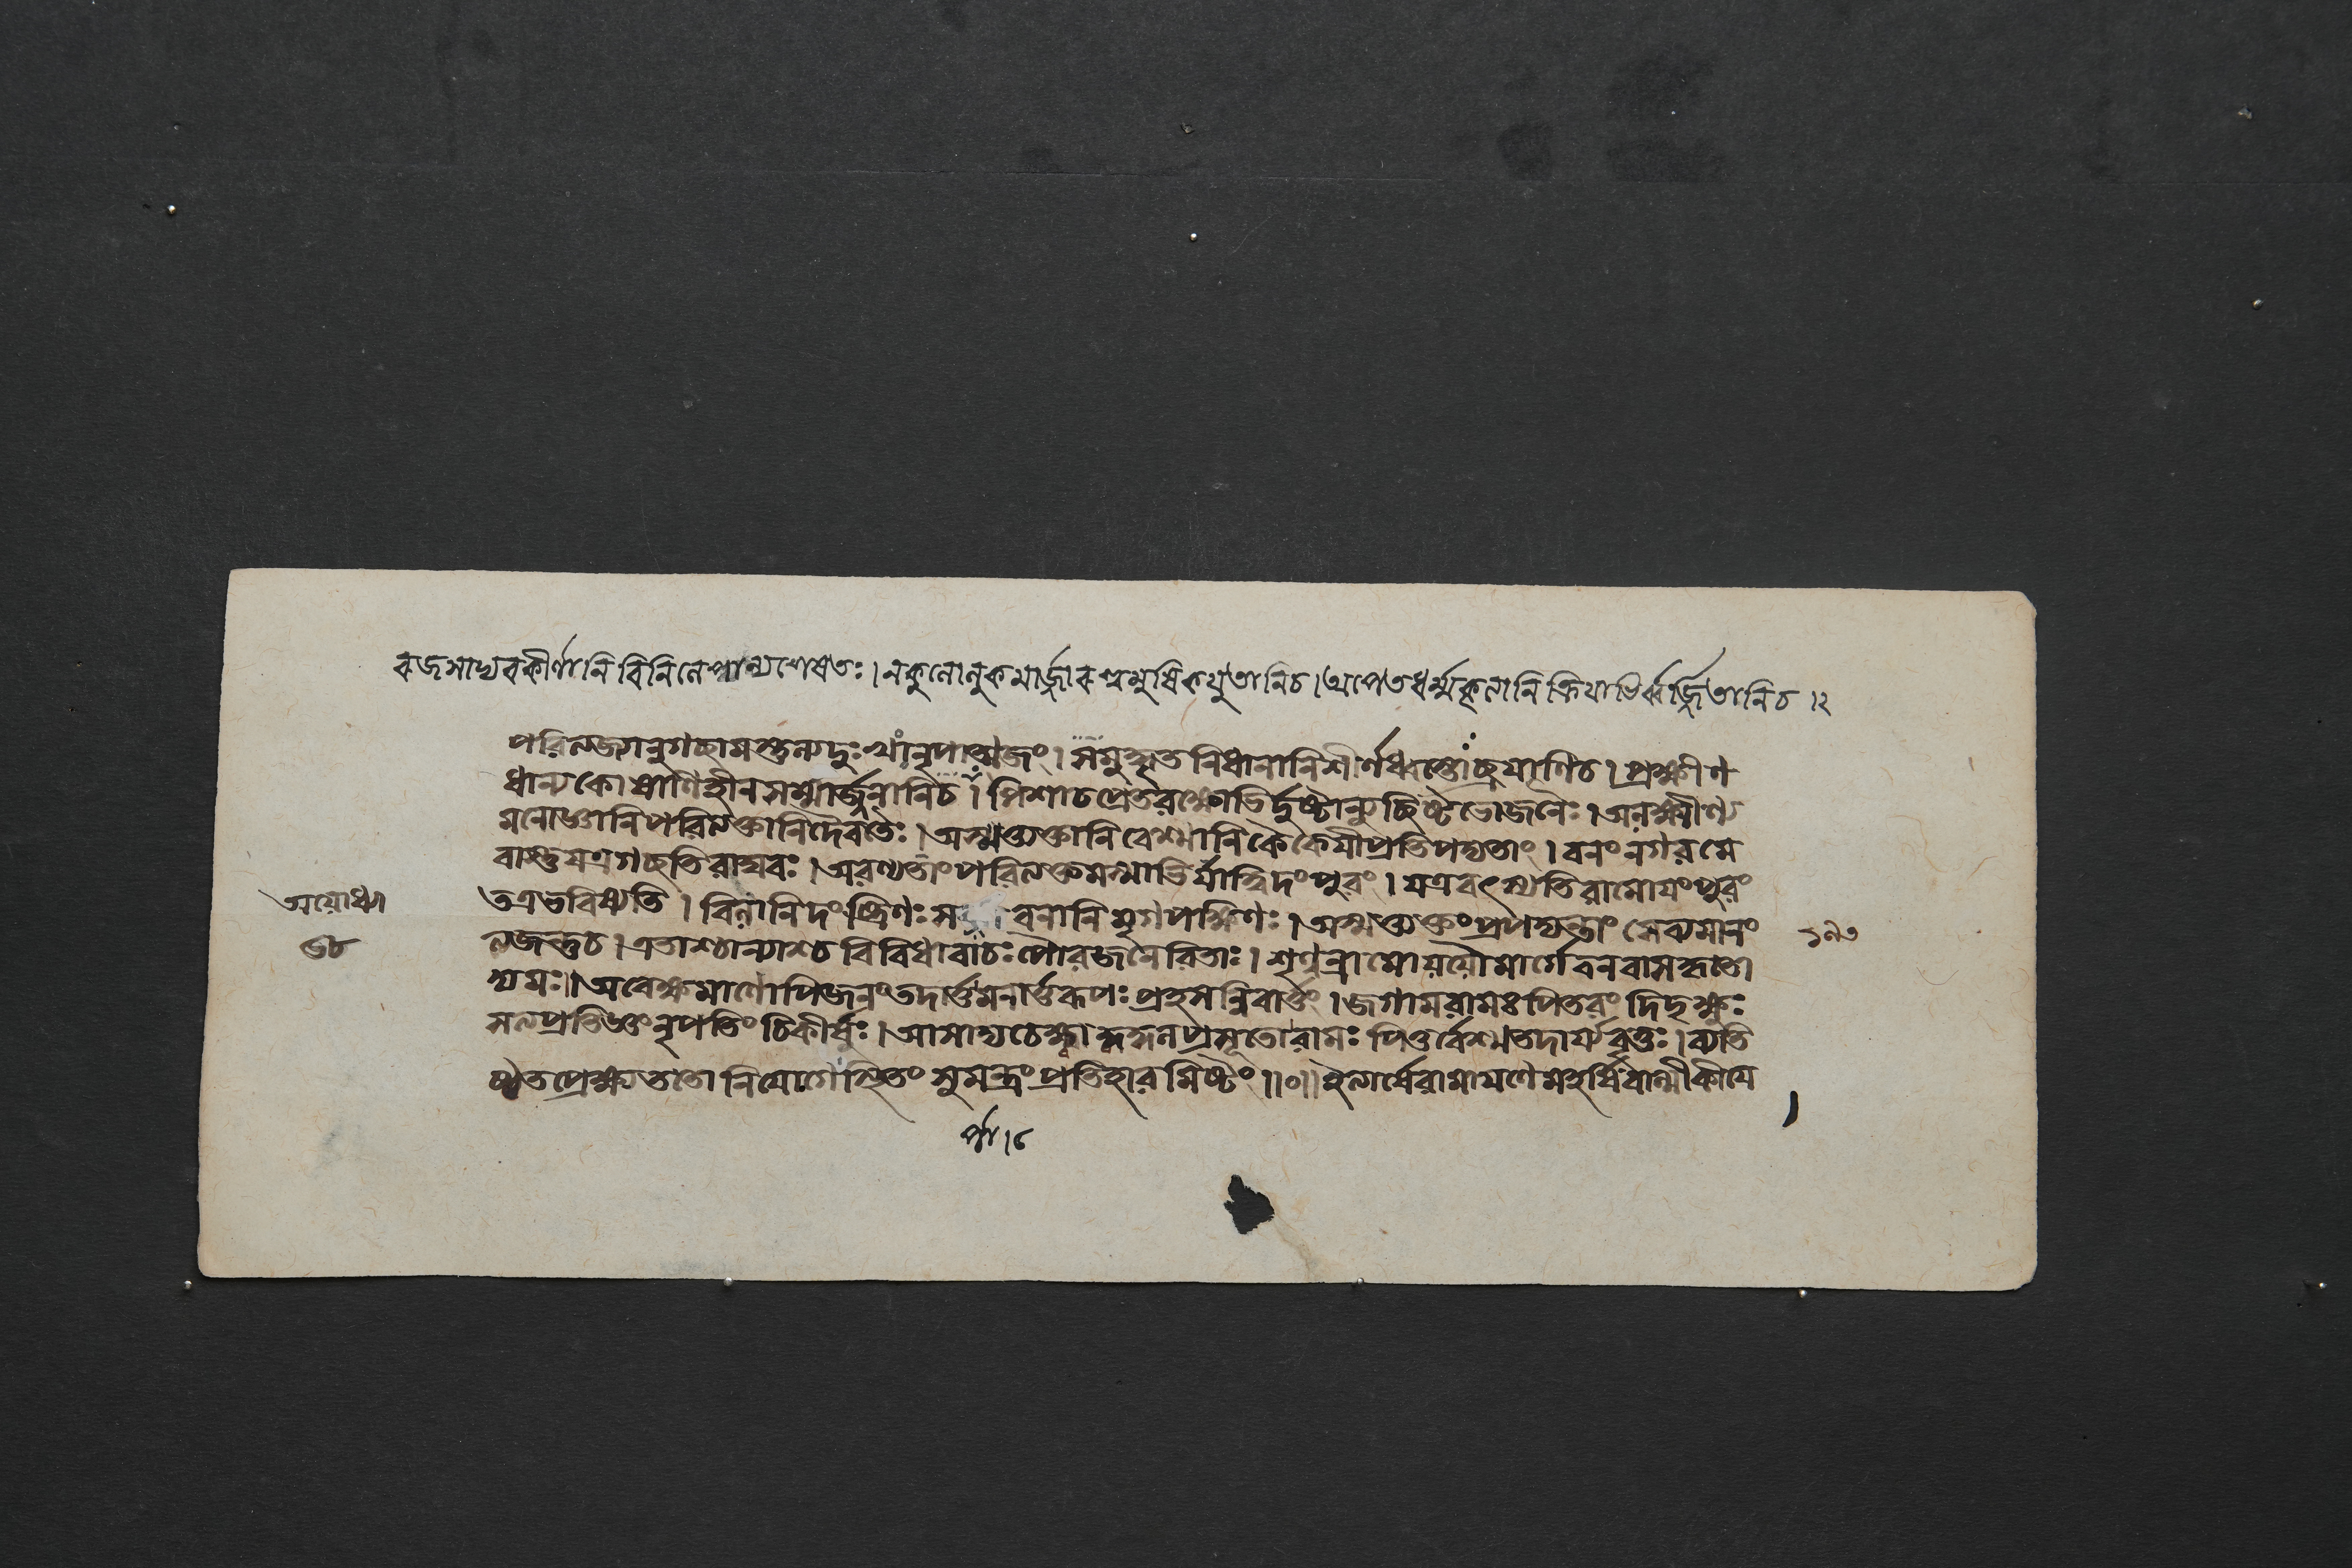 ৰজসাদ্যৰকীর্ণানি বিনিলেপান্যশেষতঃ। নকুলোলুকমার্জ্জাৰপ্রমুষিকযুতানিচ। অপেতধর্ম্মকৃত্যানি ক্রিযাভির্ব্বর্জ্জিতানিচ।২
পরিত্যজ্যানুগচ্ছামস্তুল্যদুঃখানৃপাত্মজং। সমুদ্ধৃতনিধানানিশীর্ণধ্বস্তোচ্ছ্রযাণিচ। প্রক্ষীণ
ধান্যকোষাণিহীনসম্মার্জ্জনানিচ। পিশাচপ্রেতরক্ষোভির্দুষ্টান্যুচ্ছিষ্টভোজনৈঃ। অলক্ষ্মীণ্য
মনোজ্ঞানিপরিত্যক্তানিদৈবতৈঃ। অস্মত্ত্যক্তানিবেশ্মানি কৈকেযীপ্রতিপদ্যতাং। বনংনগরমে
বাস্তুযত্রগচ্ছতিরাঘবঃ। অরণ্যতাংপরিত্যক্তমস্মাভির্যাত্বিদংপুরং। যত্রবৎস্যতিরামোযংপুরং
তত্রভবিষ্যতি। বিলানিদংষ্ট্রিণঃ বনানি মৃগপক্ষিণঃ। অস্মত্ত্যক্তংপ্রপদ্যন্তাং সেব্যমানং
ত্যজন্তুচ। এতাশ্চান্যাশ্চ বিবিধাবাচঃপৌরজনেরিতাঃ। শৃণ্বন্রামোযযৌমার্গেবনবাসকৃতো
দ্যমঃ॥ অবেক্ষমাণোপিজনংতদার্ত্তমনার্ত্তরূপঃপ্রহসন্নিবার্ত্তং। জগামরামঃপিতরংদিদৃক্ষুঃ
সত্যপ্রতিজ্ঞংনৃপতিংচিকীর্ষুঃ। আসাদ্যচেক্ষ্বাকুসলপ্রসূতোরামঃ পিতুর্বেশ্মতদার্যবৃত্তঃ। ব্যতি
ষ্ঠতপ্রেক্ষ্যততো নিযোগেস্থিতং সুমন্ত্রং প্রতিহারমিষ্টং॥০॥ ইত্যার্ষেরামাযণেমহর্ষিবাল্মীকীযে
অয়োধ্যা
৬৮
১৯৩
র্ণা।৫